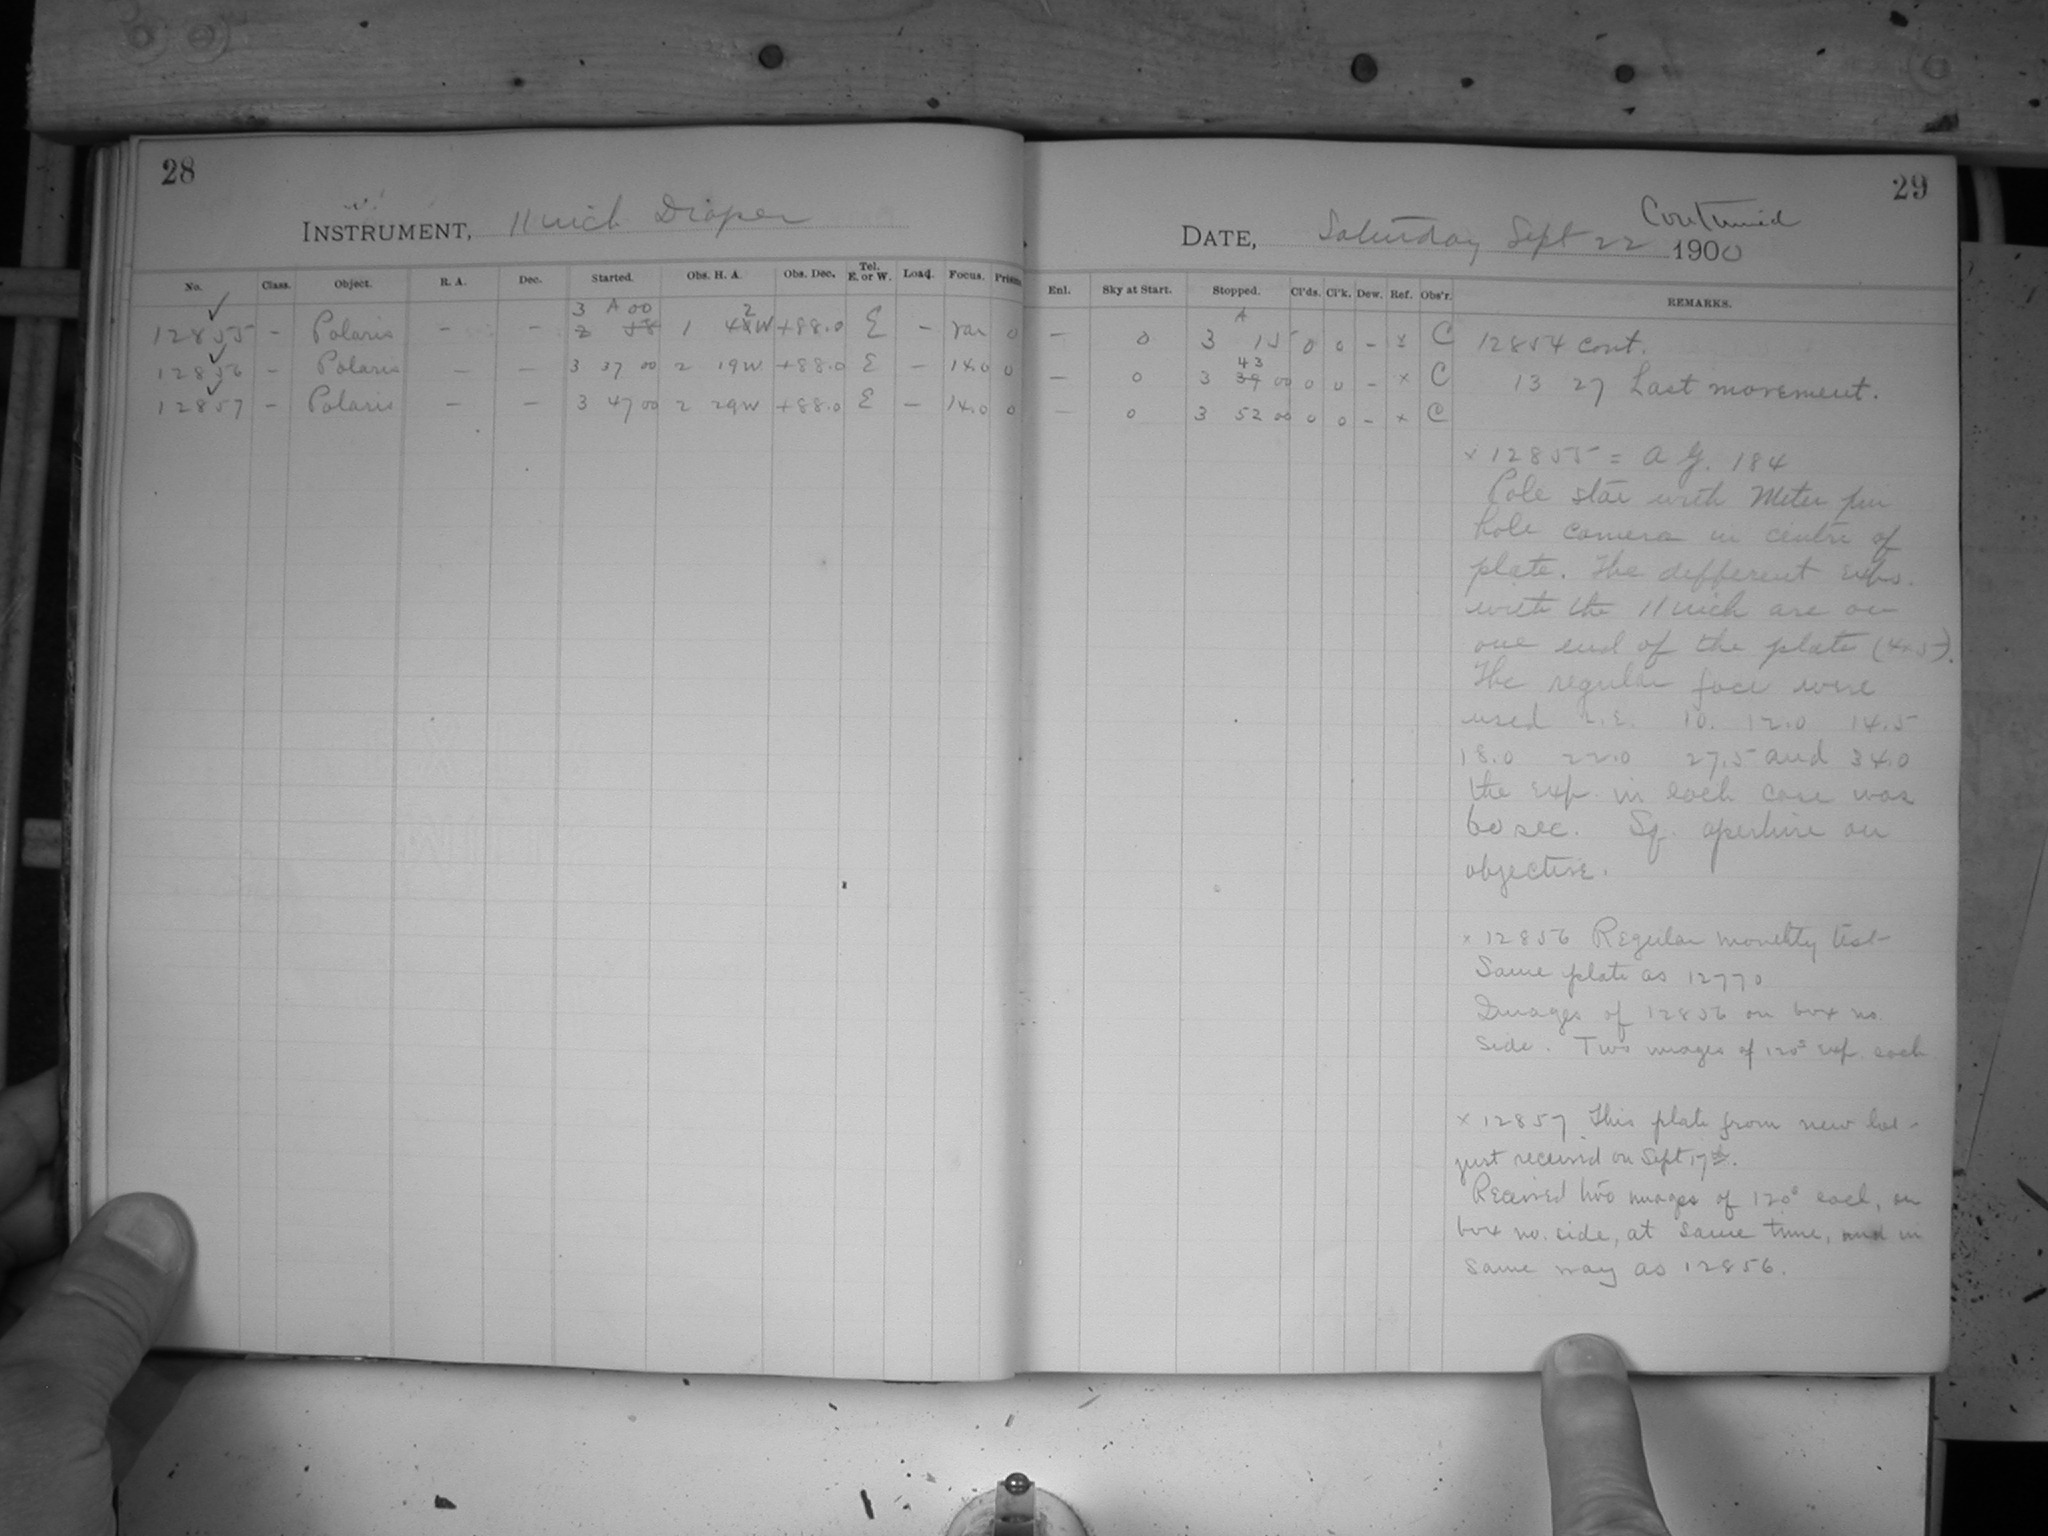 28
INSTRUMENT, 11 inch Draper
No. Class. Object. R. A. Dec. Started. Obs. H. A. Obs. Dec. Tel. E. or W. Load. Focus. Prism
3 A 00 2
12855 - Polaris - - 2 58 1 48W +88.0 E - var 0
12856 - Polaris - - 3 37 00 2 19W +88.0 E - 14.0 0
12857 - Polaris - - 3 47 00 2 29W +88.0 E - 14.0 0
29
Continued
DATE, Saturday Sept 22 1900
Enl. Sky at Start. Stopped. Cl'ds. Cl'k. Dew. Ref. Obs'r. REMARKS.
A
- 0 3 15 0 0 - x C 12854 cont.
43
- 0 3 39 00 0 0 - x C 13 27 Last movement.
- 0 3 52 00 0 0 - x C
x 12855 = A G. 184
Pole star with Meter pin
hole camera in centre of
plate. The different exps.
with the 11 inch are on
one end of the plate (4x5).
The regular foci were
used i.e. 10. 12.0 14.5
18.0 22.0 27.5 and 34.0
the exp. in each case was
60 sec. Sq. aperture on
objective.
x 12856 Regular monthly test
Same plate as 12770
Images of 12856 on box no.
side. Two images of 120s exp. each
x 12857 This plate from new lot
just received on Sept 17th.
Received two images of 120s each, on
box no. side, at same time, and in
same way as 12856.